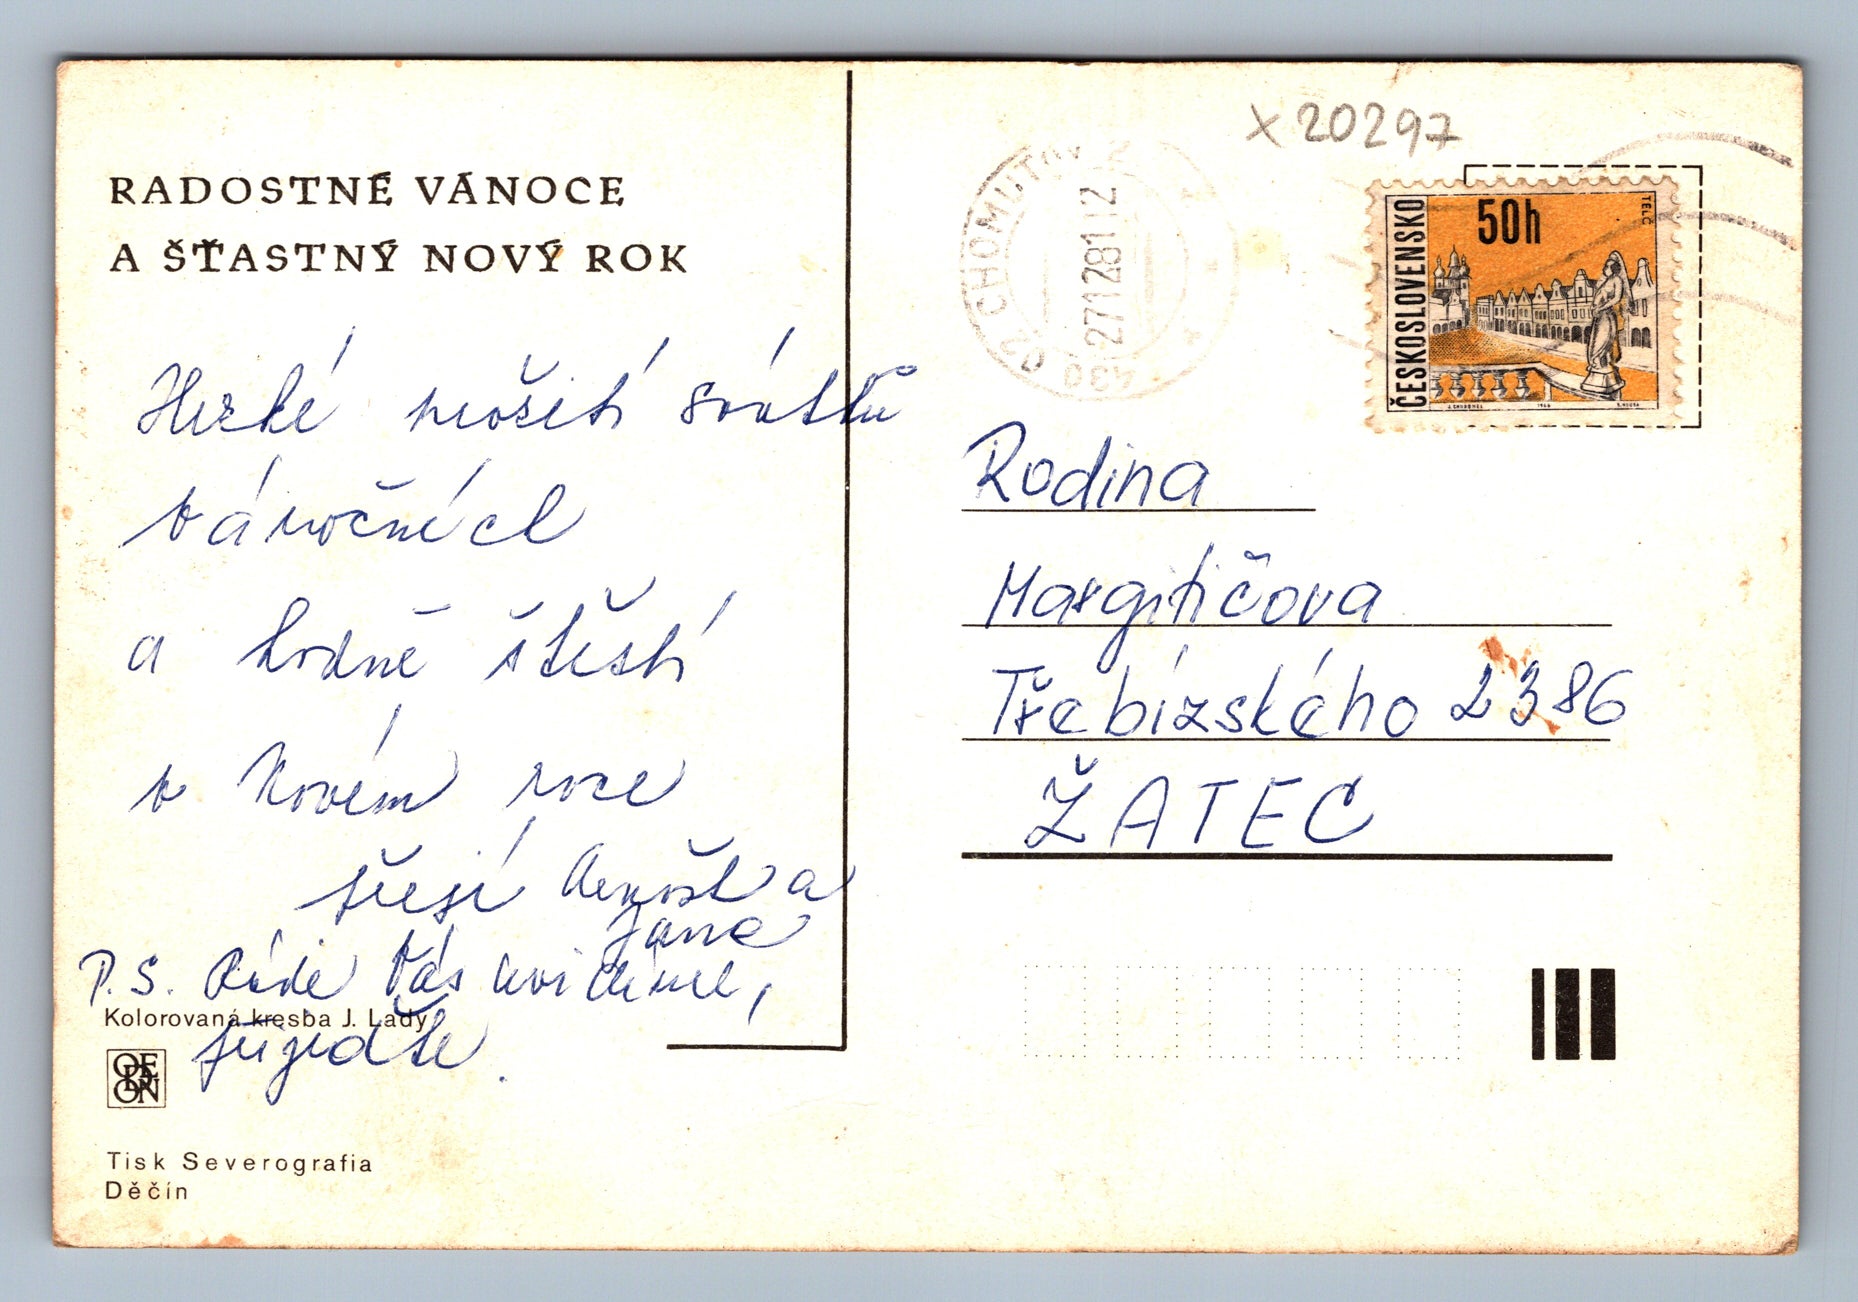 RADOSTNÉ VÁNOCE
A ŠŤASTNÝ NOVÝ ROK
Hezké prožití svátků
vánočních
a hodně štěstí
v Novém roce
přejí Arnošt a
Jana
P.S. Rádi Vás uvidíme,
přijeďte.
Kolorovaná kresba J. Lady
ODEON
Tisk Severografia
Děčín
X 20297
CHOMUTOV
430 02
27.12.81 12
ČESKOSLOVENSKO
50h
TELČ
Rodina
Margitičova
Třebízského 2386
ŽATEC